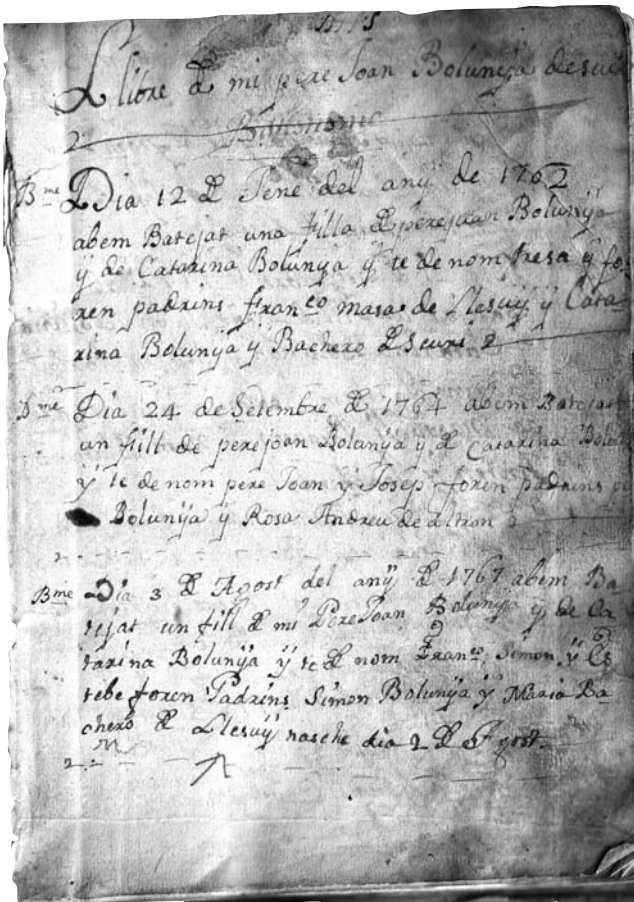 Llibre de mi pere Joan Bolunyà de
Dia 12 de Jene del anÿ de 1762
abem Batejat una filla de perejoan Bolunÿa
ÿ de Catarina Bolunya ÿ te de nom tresa ÿ fo
ren padrins franco masa de Llesuÿ ÿ Cata
rina Bolunÿa ÿ Bachero de
Bme Dia 24 de Setembre de 1764 abem Batejat
un fill de perejoan Bolunÿa ÿ de Catarina
ÿ te de nom pere Joan ÿ Josep foren padrins
Bolunÿa ÿ Rosa Andreu de altron
Bme Dia 3 de Agost del anÿ de 1767 abem Ba
tejat un fill de mi Pere Joan Bolunÿa ÿ de Ca
tarina Bolunÿa ÿ te de nom Franco Simon ÿ Es
tebe foren Padrins Simon Bolunÿa ÿ Maria Ba
chero de Llesuÿ nasche dia 2 de Agost